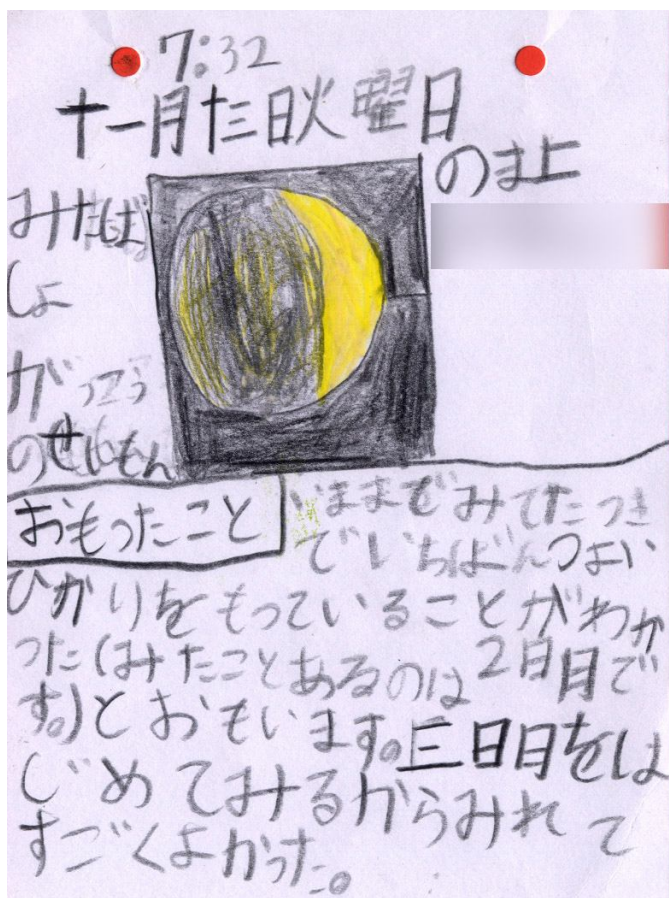 7:32
十一月十三日火曜日
のま上
みたばしょ
がっこう
のせいもん
おもったこと
いままでみてたつき
でいちばんつよい
ひかりをもっていることがわか
った(はみたことあるのは2日目で
す。)とおもいます。三日目をは
じめてみるからみれて
すごくよかった。